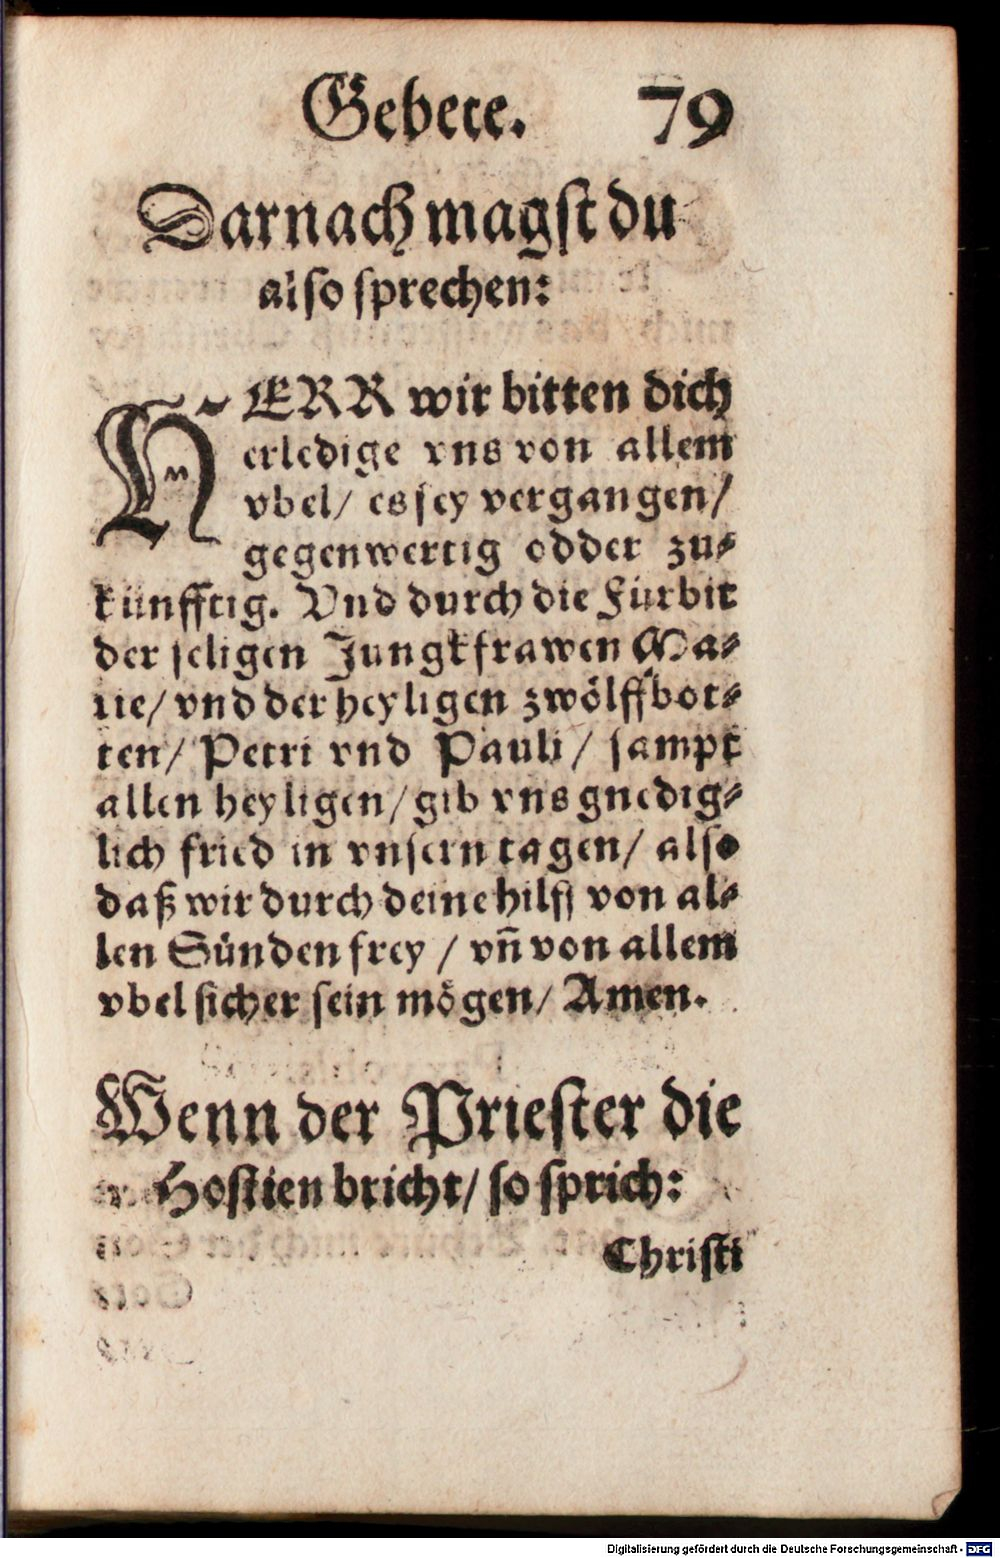 Gebete. 79
Darnach magst du
also sprechen:
HERR wir bitten dich
erledige vns von allem
vbel/ es sey vergangen/
gegenwertig odder zu-
künfftig. Vnd durch die Fürbit
der seligen Jungkfrawen Ma-
rie/ vnd der heyligen zwölffbot-
ten/ Petri vnd Pauli/ sampt
allen heyligen/ gib vns gnedig-
lich fried in vnsern tagen/ also
daß wir durch deine hilff von al-
len Sünden frey / vñ von allem
vbel sicher sein mögen/ Amen.
Wenn der Priester die
Hostien bricht/ so sprich:
Christi
Digitalisierung gefördert durch die Deutsche Forschungsgemeinschaft - DFG